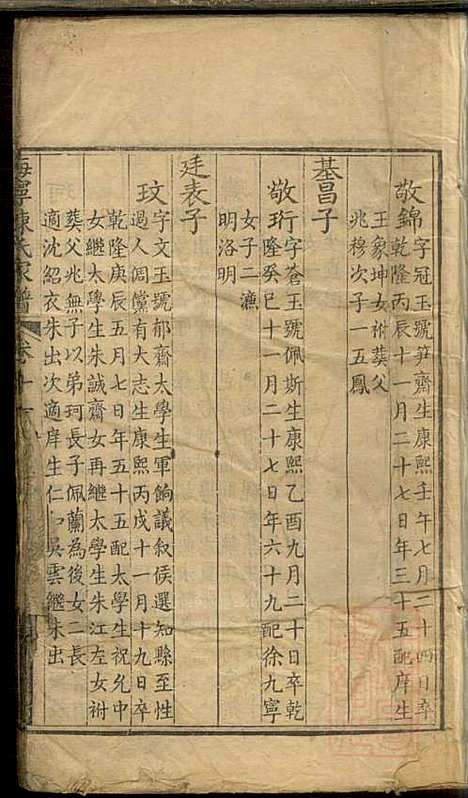 敬錦字冠玉號笋齋生康熙壬午七月二十四日卒
乾隆丙辰十一月二十七日年三十五配庠生
王象坤女祔葬父
兆穆次子一五鳳
基昌子
敬珩字蒼玉號佩斯生康熙乙酉九月二十日卒乾
隆癸巳十一月二十七日年六十九配徐九寧
女子二漁
明洛明
廷表子
玟字文玉號郁齋太學生軍餉議敘候選知縣至性
過人倜儻有大志生康熙丙戌十一月十九日卒
乾隆庚辰五月七日年五十五配太學生祝允中
女繼太學生朱誠齋女再繼太學生朱江左女祔
葬父兆無子以弟珂長子佩蘭為後女二長
適沈紹衣朱出次適庠生仁和吳雲繼朱出
海寧陳氏家譜 卷十